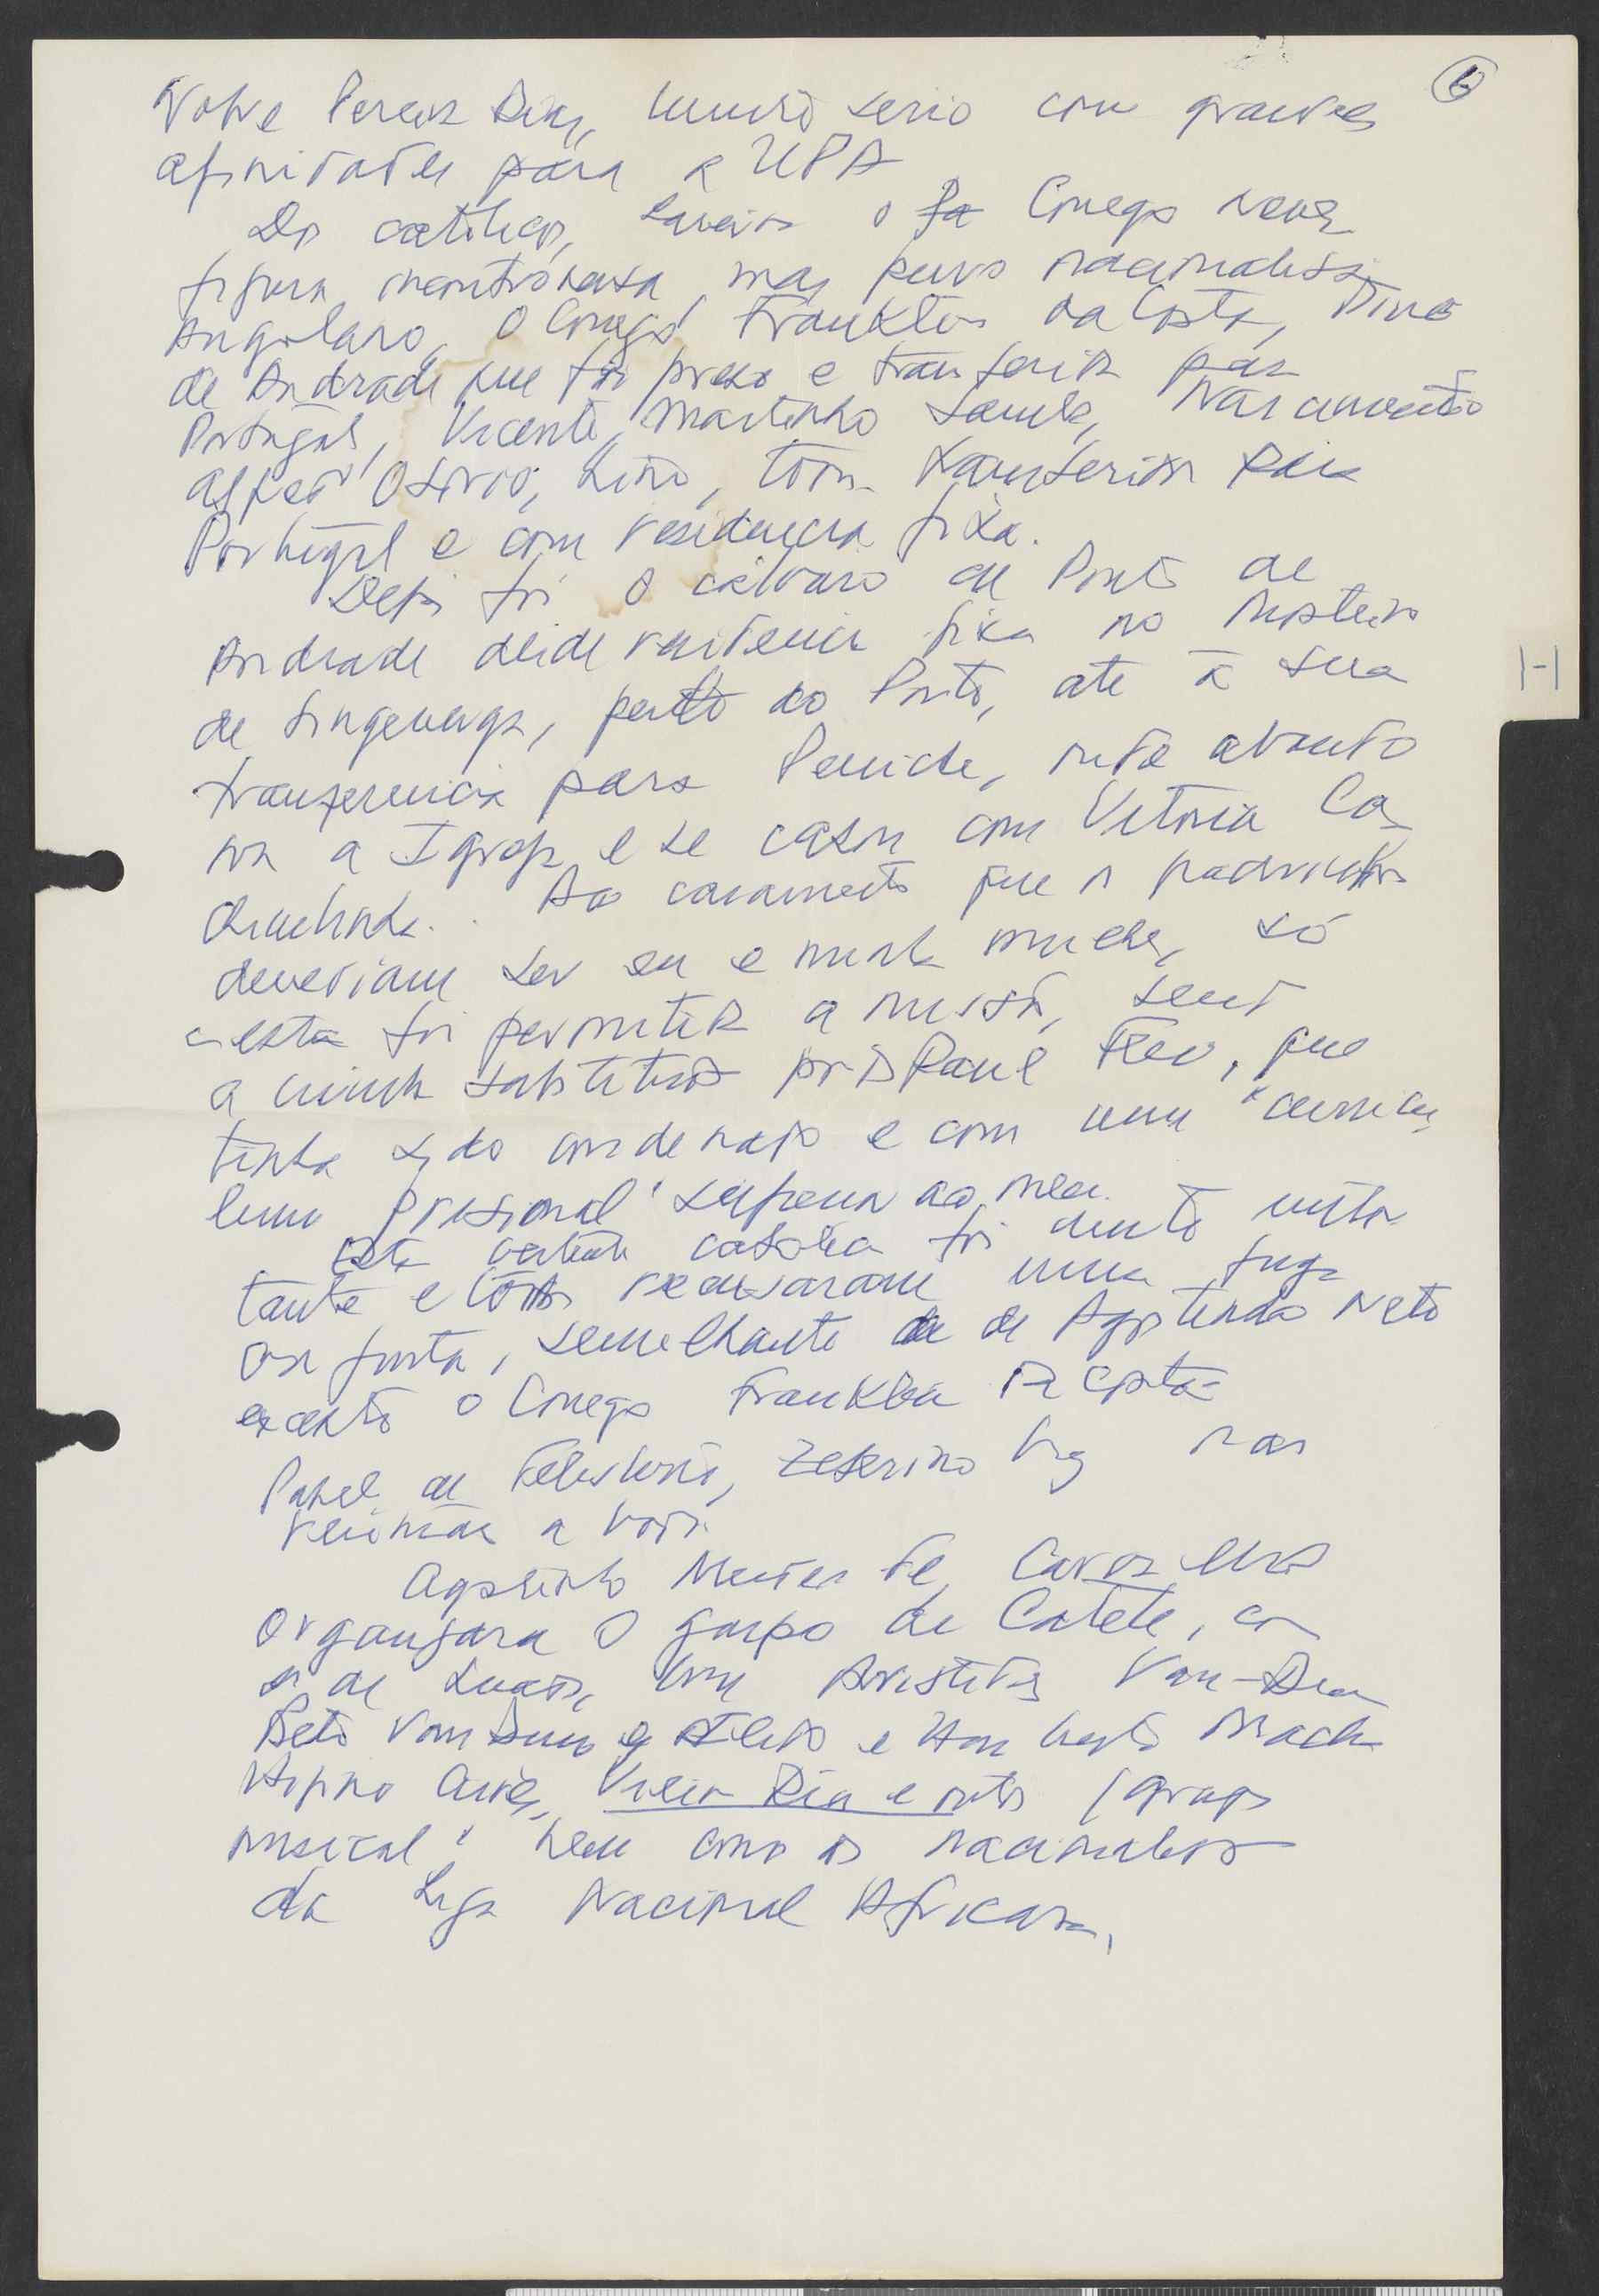 6
Nobre Pereira Dias, muito serio com grandes
afinidades para a UPA
Dos catolicos, o Conego
figura mas puro nacionalista
Angolano, o Conego Franklin da Costa, Pinto
de Andrade que foi preso e transferido para
Portugal, Vicente, Martinho Samba, Nascimento
Alfredo Osorio, Lino, todos transferidos para
Portugal e com residencia fixa.
Depois foi o calvario de Pinto de
Andrade desde residencia fixa no Mosteiro
de Singeverga, perto do Porto, ate à sua
transferencia para Peniche, onde abando
na a Igreja e se casou com Vitoria
Almeida. Ao casamento que os padrinhos
deveriam ser eu e minha mulher, só
a esta foi permitida a missão, sendo
a minha substituido por Raul Feio, que
tinha sido condenado e com um "curricu
lum prisional" superior ao meu.
Esta vertente catolica foi muito
tante e todos recusaram uma fuga
semelhante de Agostinho Neto
excepto o Conego Franklin da Costa
Papel de Felisberto, Zeferino nas
a
Agostinho Mendes de Carvalho
organizara o grupo de Catete, com
o de Luanda, com Aristides Van-Dunem
Beto Van Dunem e e Humberto Machado
Aires, Dias e outros (grupo
musical) bem como os nacionalistas
da Liga Nacional Africana,
1-1